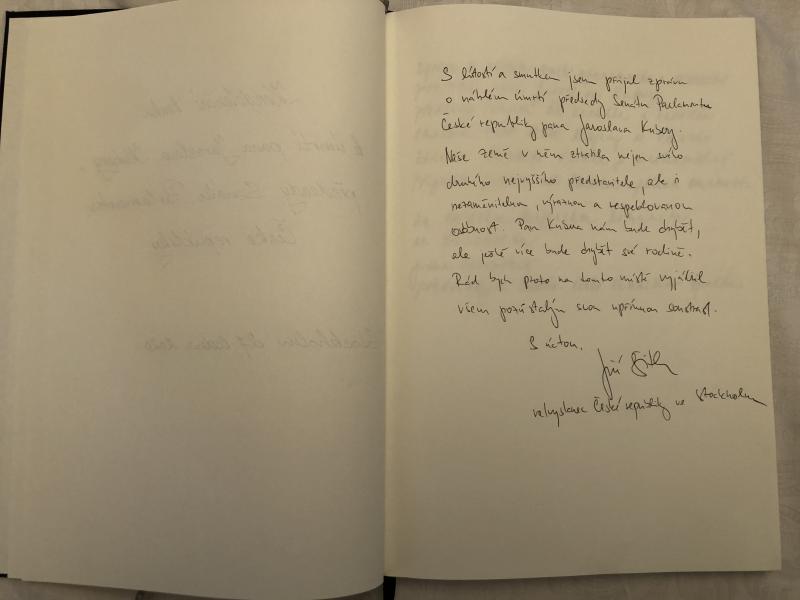 S lítostí a smutkem jsem přijal zprávu
o náhlém úmrtí předsedy Senátu Parlamentu
České republiky pana Jaroslava Kubery.
Naše země v něm ztratila nejen svého
druhého nejvyššího představitele, ale i
nezaměnitelnou, výraznou a respektovanou
osobnost. Pan Kubera nám bude chybět,
ale ještě více bude chybět své rodině.
Rád bych proto na tomto místě vyjádřil
všem pozůstalým svou upřímnou soustrast.
S úctou,
Jiří
velvyslanec České republiky ve Stockholmu